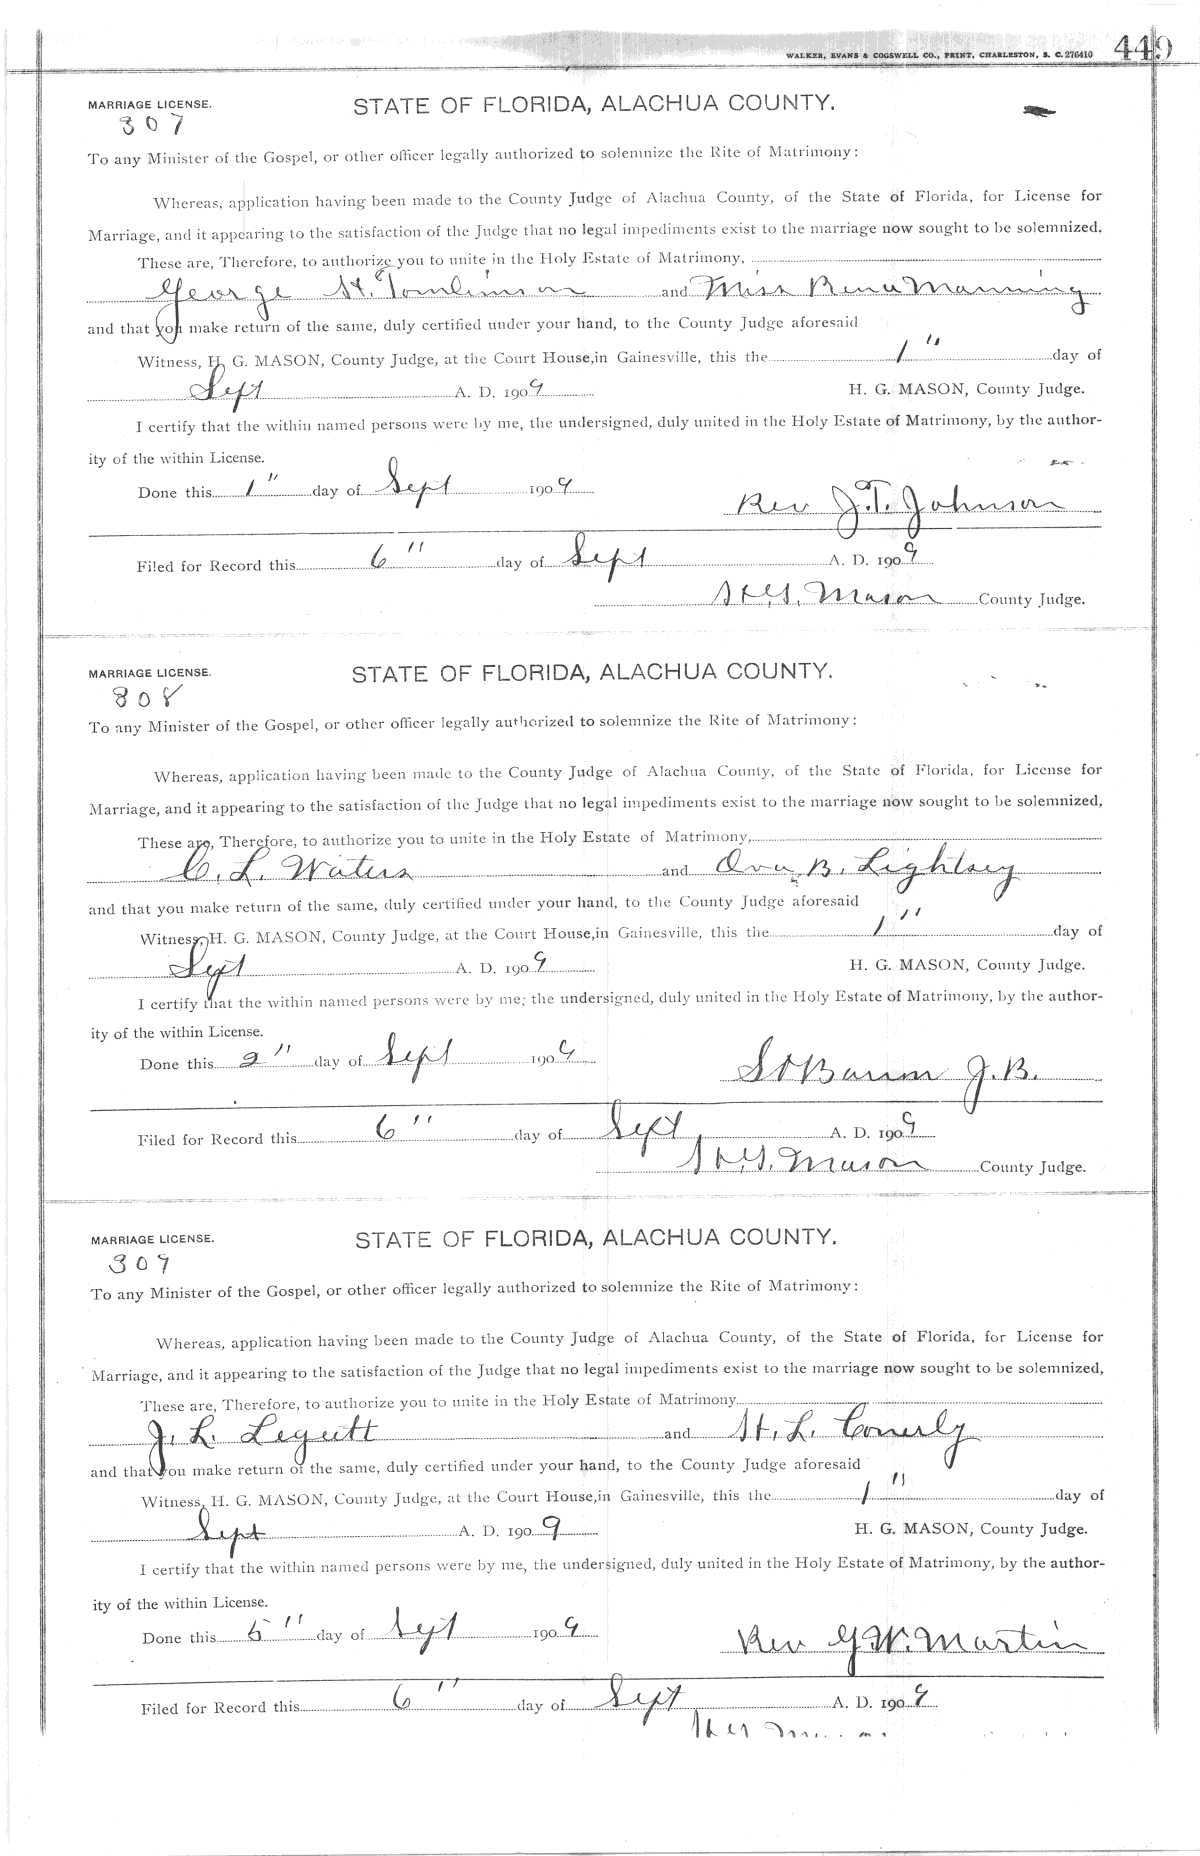 WALKER, EVANS & COGSWELL CO., PRINT, CHARLESTON, S. C. 276410 449
MARRIAGE LICENSE. STATE OF FLORIDA, ALACHUA COUNTY.
307
To any Minister of the Gospel, or other officer legally authorized to solemnize the Rite of Matrimony:
Whereas, application having been made to the County Judge of Alachua County, of the State of Florida, for License for
Marriage, and it appearing to the satisfaction of the Judge that no legal impediments exist to the marriage now sought to be solemnized.
These are, Therefore, to authorize you to unite in the Holy Estate of Matrimony,
George H. Tomlinson and Miss Rena Manning
and that you make return of the same, duly certified under your hand, to the County Judge aforesaid
Witness, H. G. MASON, County Judge, at the Court House, in Gainesville, this the 1" day of
Sept A. D. 1909 H. G. MASON, County Judge.
I certify that the within named persons were by me, the undersigned, duly united in the Holy Estate of Matrimony, by the author-
ity of the within License.
Done this 1" day of Sept 1909 Rev J.T. Johnson
Filed for Record this 6" day of Sept A. D. 1909
H.G. Mason County Judge.
MARRIAGE LICENSE. STATE OF FLORIDA, ALACHUA COUNTY.
308
To any Minister of the Gospel, or other officer legally authorized to solemnize the Rite of Matrimony:
Whereas, application having been made to the County Judge of Alachua County, of the State of Florida, for License for
Marriage, and it appearing to the satisfaction of the Judge that no legal impediments exist to the marriage now sought to be solemnized,
These are, Therefore, to authorize you to unite in the Holy Estate of Matrimony,
C. L. Waters and Ova B. Lightsey
and that you make return of the same, duly certified under your hand, to the County Judge aforesaid
Witness, H. G. MASON, County Judge, at the Court House, in Gainesville, this the 1" day of
Sept A. D. 1909 H. G. MASON, County Judge.
I certify that the within named persons were by me; the undersigned, duly united in the Holy Estate of Matrimony, by the author-
ity of the within License.
Done this 2" day of Sept 1909 J.B.
Filed for Record this 6" day of Sept A. D. 1909
H.G. Mason County Judge.
MARRIAGE LICENSE. STATE OF FLORIDA, ALACHUA COUNTY.
309
To any Minister of the Gospel, or other officer legally authorized to solemnize the Rite of Matrimony:
Whereas, application having been made to the County Judge of Alachua County, of the State of Florida, for License for
Marriage, and it appearing to the satisfaction of the Judge that no legal impediments exist to the marriage now sought to be solemnized,
These are, Therefore, to authorize you to unite in the Holy Estate of Matrimony
J. L. Legett and H. L. Conerly
and that you make return of the same, duly certified under your hand, to the County Judge aforesaid
Witness, H. G. MASON, County Judge, at the Court House, in Gainesville, this the 1" day of
Sept A. D. 1909 H. G. MASON, County Judge.
I certify that the within named persons were by me, the undersigned, duly united in the Holy Estate of Matrimony, by the author-
ity of the within License.
Done this 5" day of Sept 1909 Rev G.W. Martin
Filed for Record this 6" day of Sept A. D. 1909